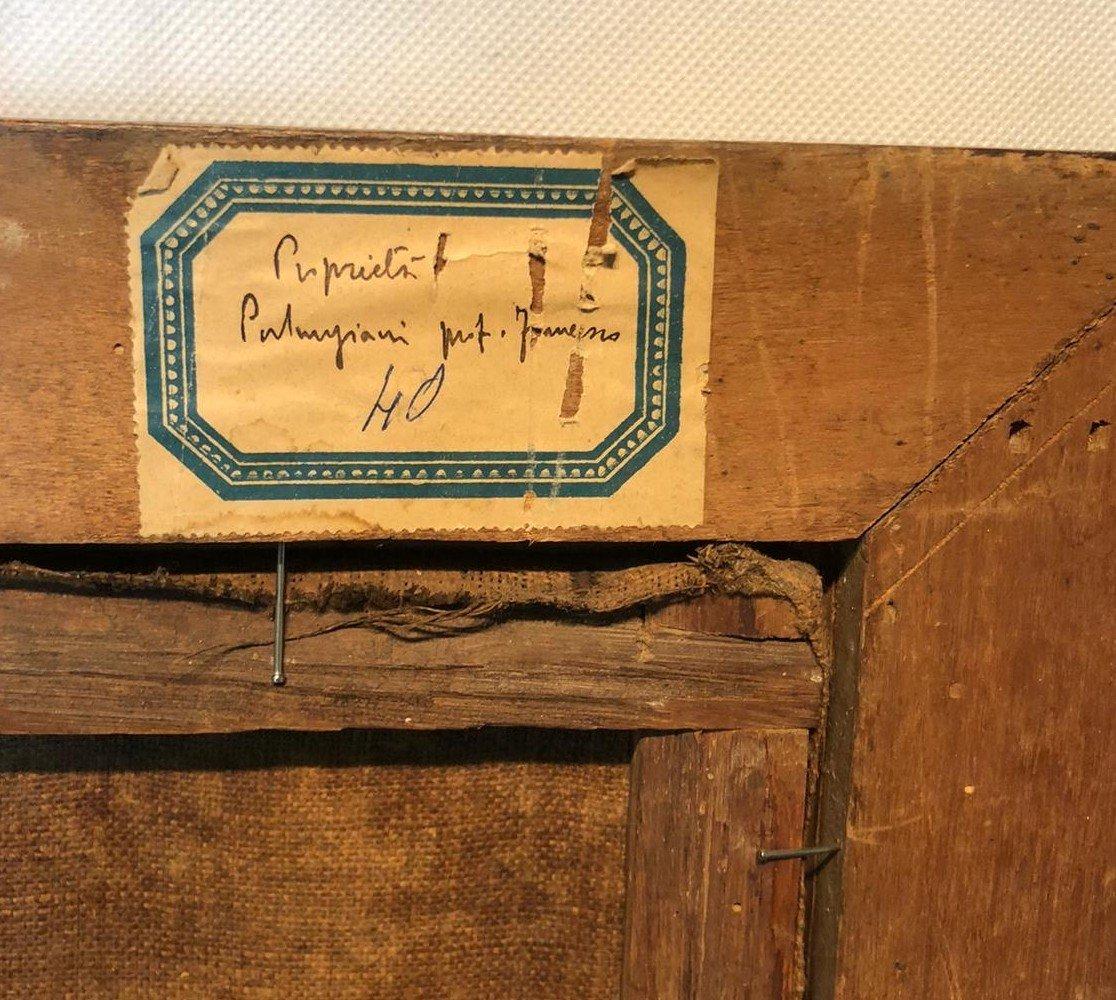 Proprietà
prof. Francesco
40